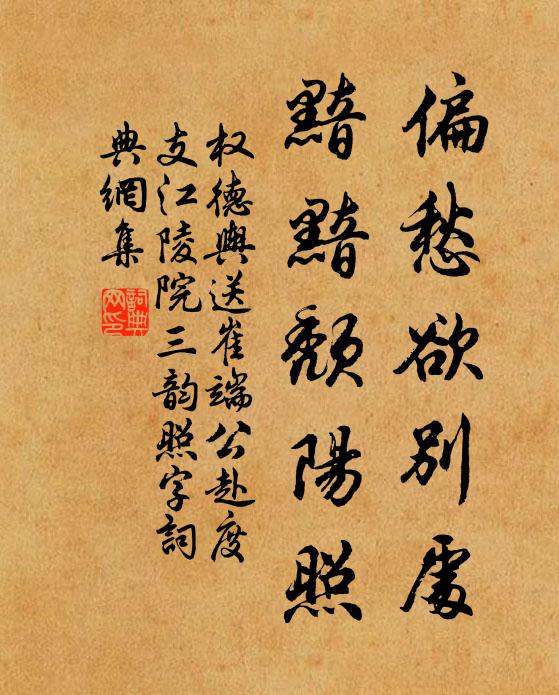 偏愁欲別處
黯黯頹陽照
权德輿送崔端公赴度
支江陵院三韵照字詞
典網集
詞典
网印